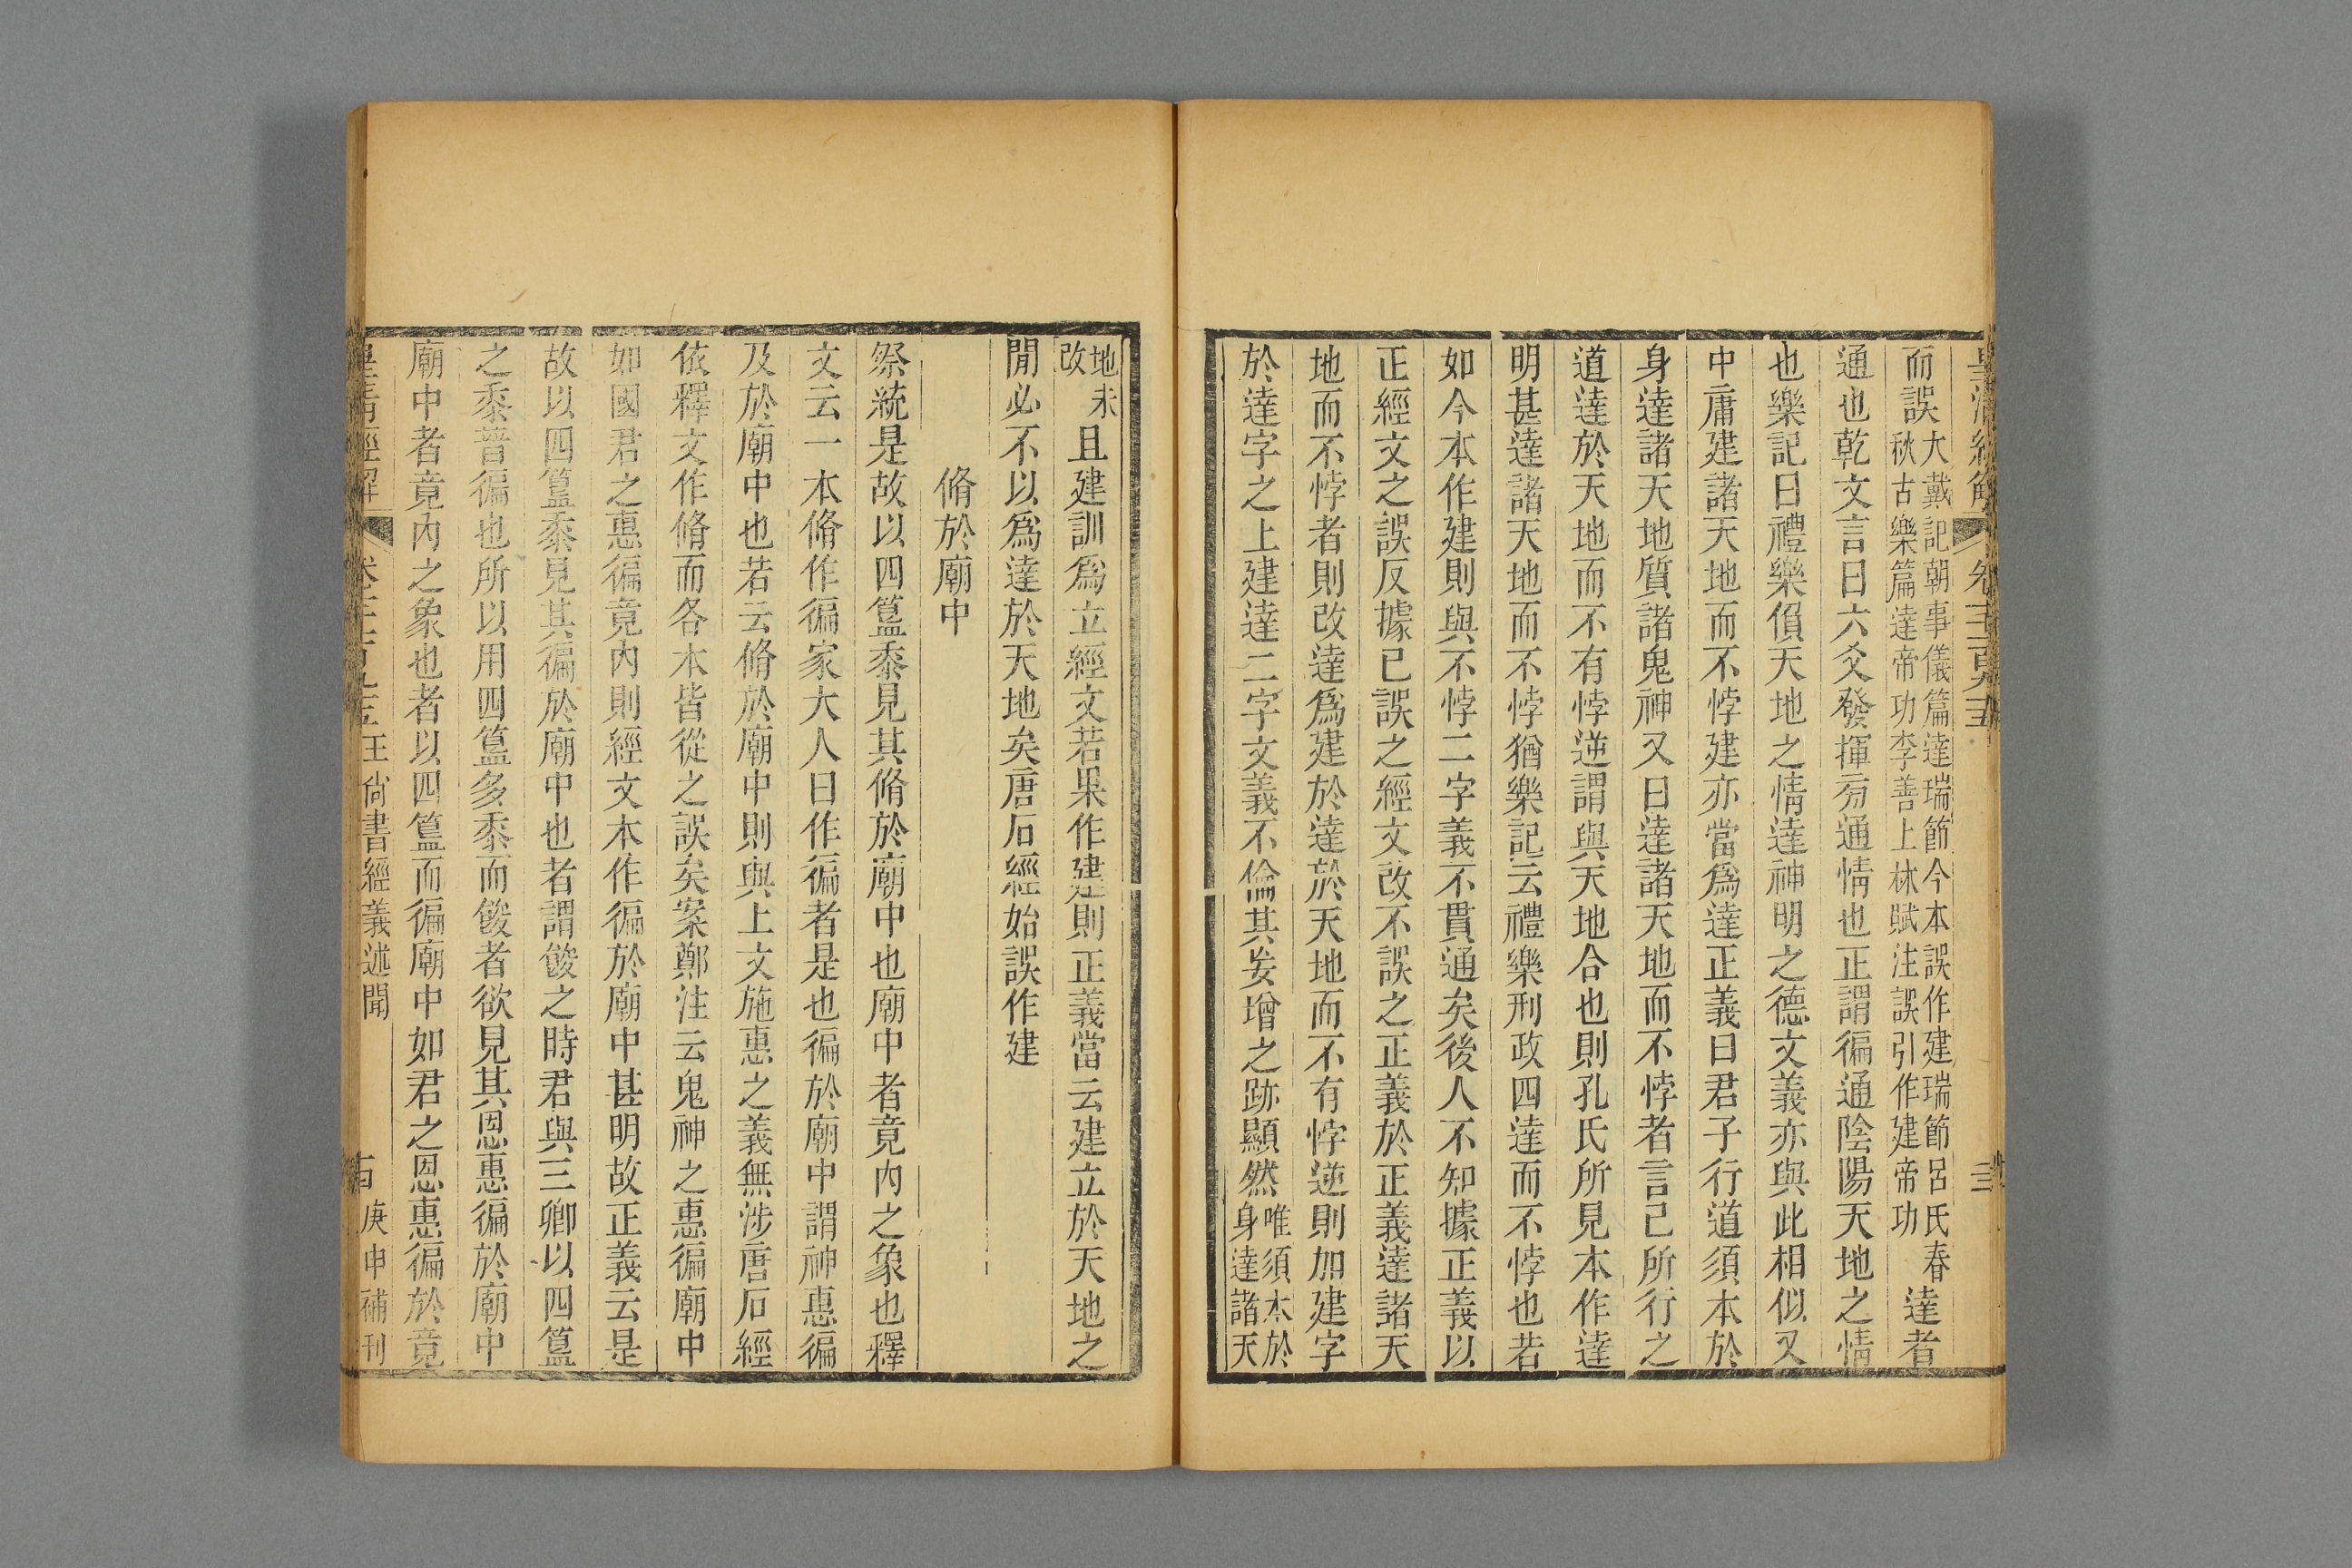 皇清經解 卷千二百九十五
而誤大戴記朝事儀篇達瑞節今本誤作建瑞節呂氏春秋古樂篇達帝功李善上林賦注誤引作建帝功達者
通也乾文言曰六爻發揮旁通情也正謂徧通陰陽天地之情
也樂記曰禮樂偩天地之情達神明之德文義亦與此相似又
中庸建諸天地而不悖建亦當爲達正義曰君子行道須本於
身達諸天地質諸鬼神又曰達諸天地而不悖者言己所行之
道達於天地而不有悖逆謂與天地合也則孔氏所見本作達
明甚達諸天地而不悖猶樂記云禮樂刑政四達而不悖也若
如今本作建則與不悖二字義不貫通矣後人不知據正義以
正經文之誤反據已誤之經文改不誤之正義於正義達諸天
地而不悖者則改達爲建於達於天地而不有悖逆則加建字
於達字之上建達二字文義不倫其妄增之跡顯然唯須本於身達諸天
地未改且建訓爲立經文若果作建則正義當云建立於天地之
閒必不以爲達於天地矣唐石經始誤作建
脩於廟中
祭統是故以四簋黍見其脩於廟中也廟中者竟內之象也釋
文云一本脩作徧家大人曰作徧者是也徧於廟中謂神惠徧
及於廟中也若云脩於廟中則與上文施惠之義無涉唐石經
依釋文作脩而各本皆從之誤矣案鄭注云鬼神之惠徧廟中
如國君之惠徧竟內則經文本作徧於廟中甚明故正義云是
故以四簋黍見其徧於廟中也者謂餕之時君與三卿以四簋
之黍普徧也所以用四簋多黍而餕者欲見其恩惠徧於廟中
廟中者竟內之象也者以四簋而徧廟中如君之恩惠徧於竟
皇清經解 王尚書經義述聞 庚申補刊